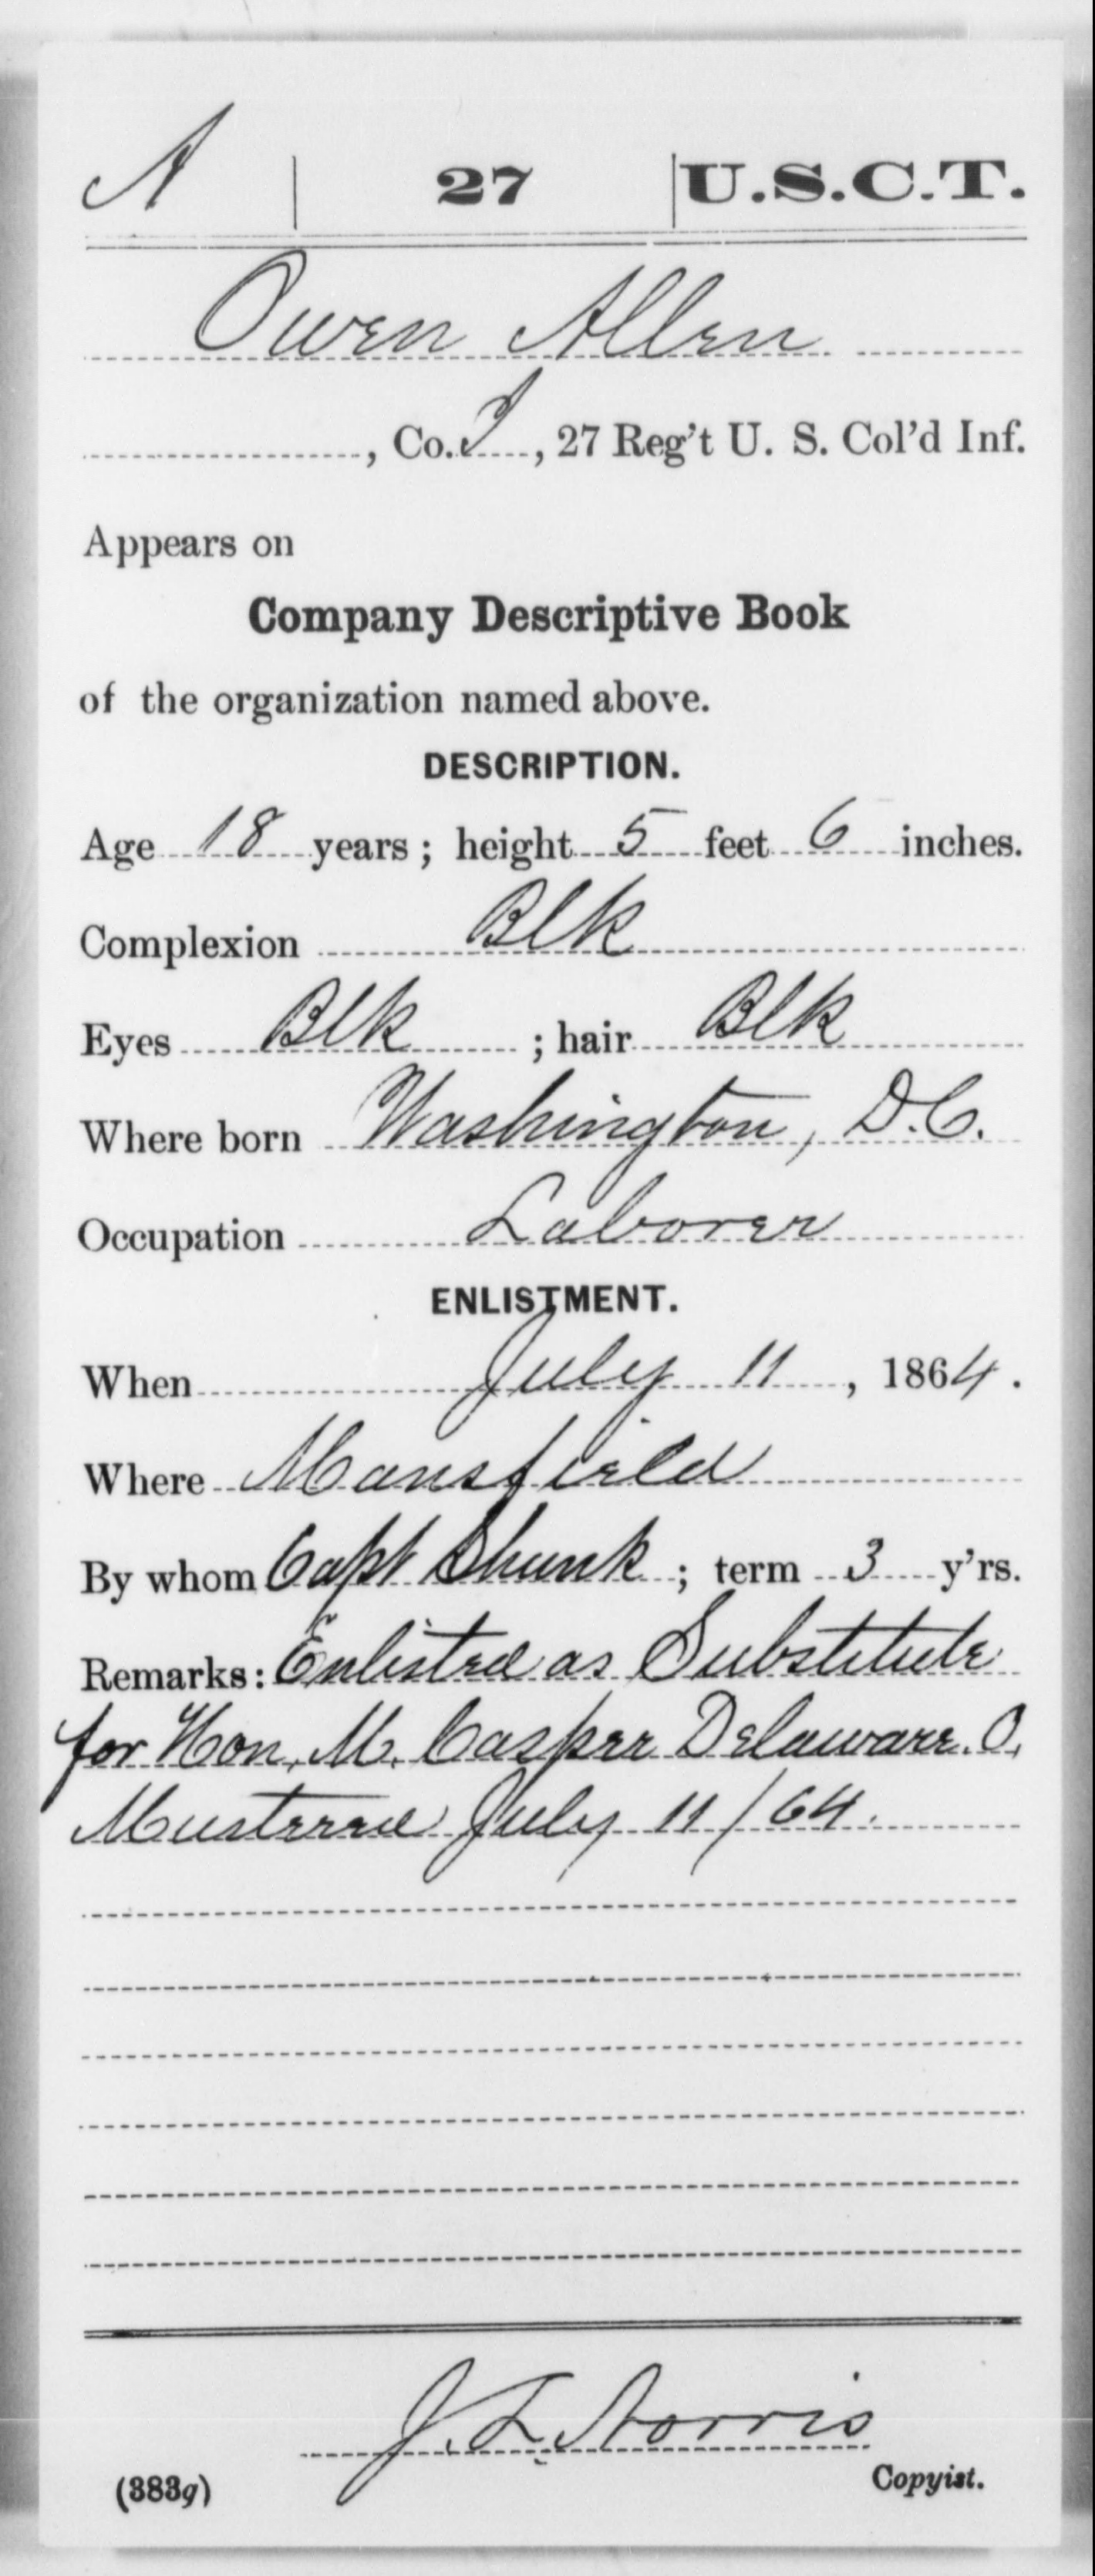 A | 27 | U.S.C.T.
Owen Allen
, Co. I, 27 Reg't U. S. Col'd Inf.
Appears on
Company Descriptive Book
of the organization named above.
DESCRIPTION.
Age 18 years; height 5 feet 6 inches.
Complexion Blk
Eyes Blk ; hair Blk
Where born Washington, D.C.
Occupation Laborer
ENLISTMENT.
When July 11, 1864.
Where Mansfield
By whom Capt Shunk; term 3 y'rs.
Remarks: Enlisted as Substitute
for Hon. M. Casper Delaware. O.
Mustered July 11/64.
J. L. Norris
(383g) Copyist.